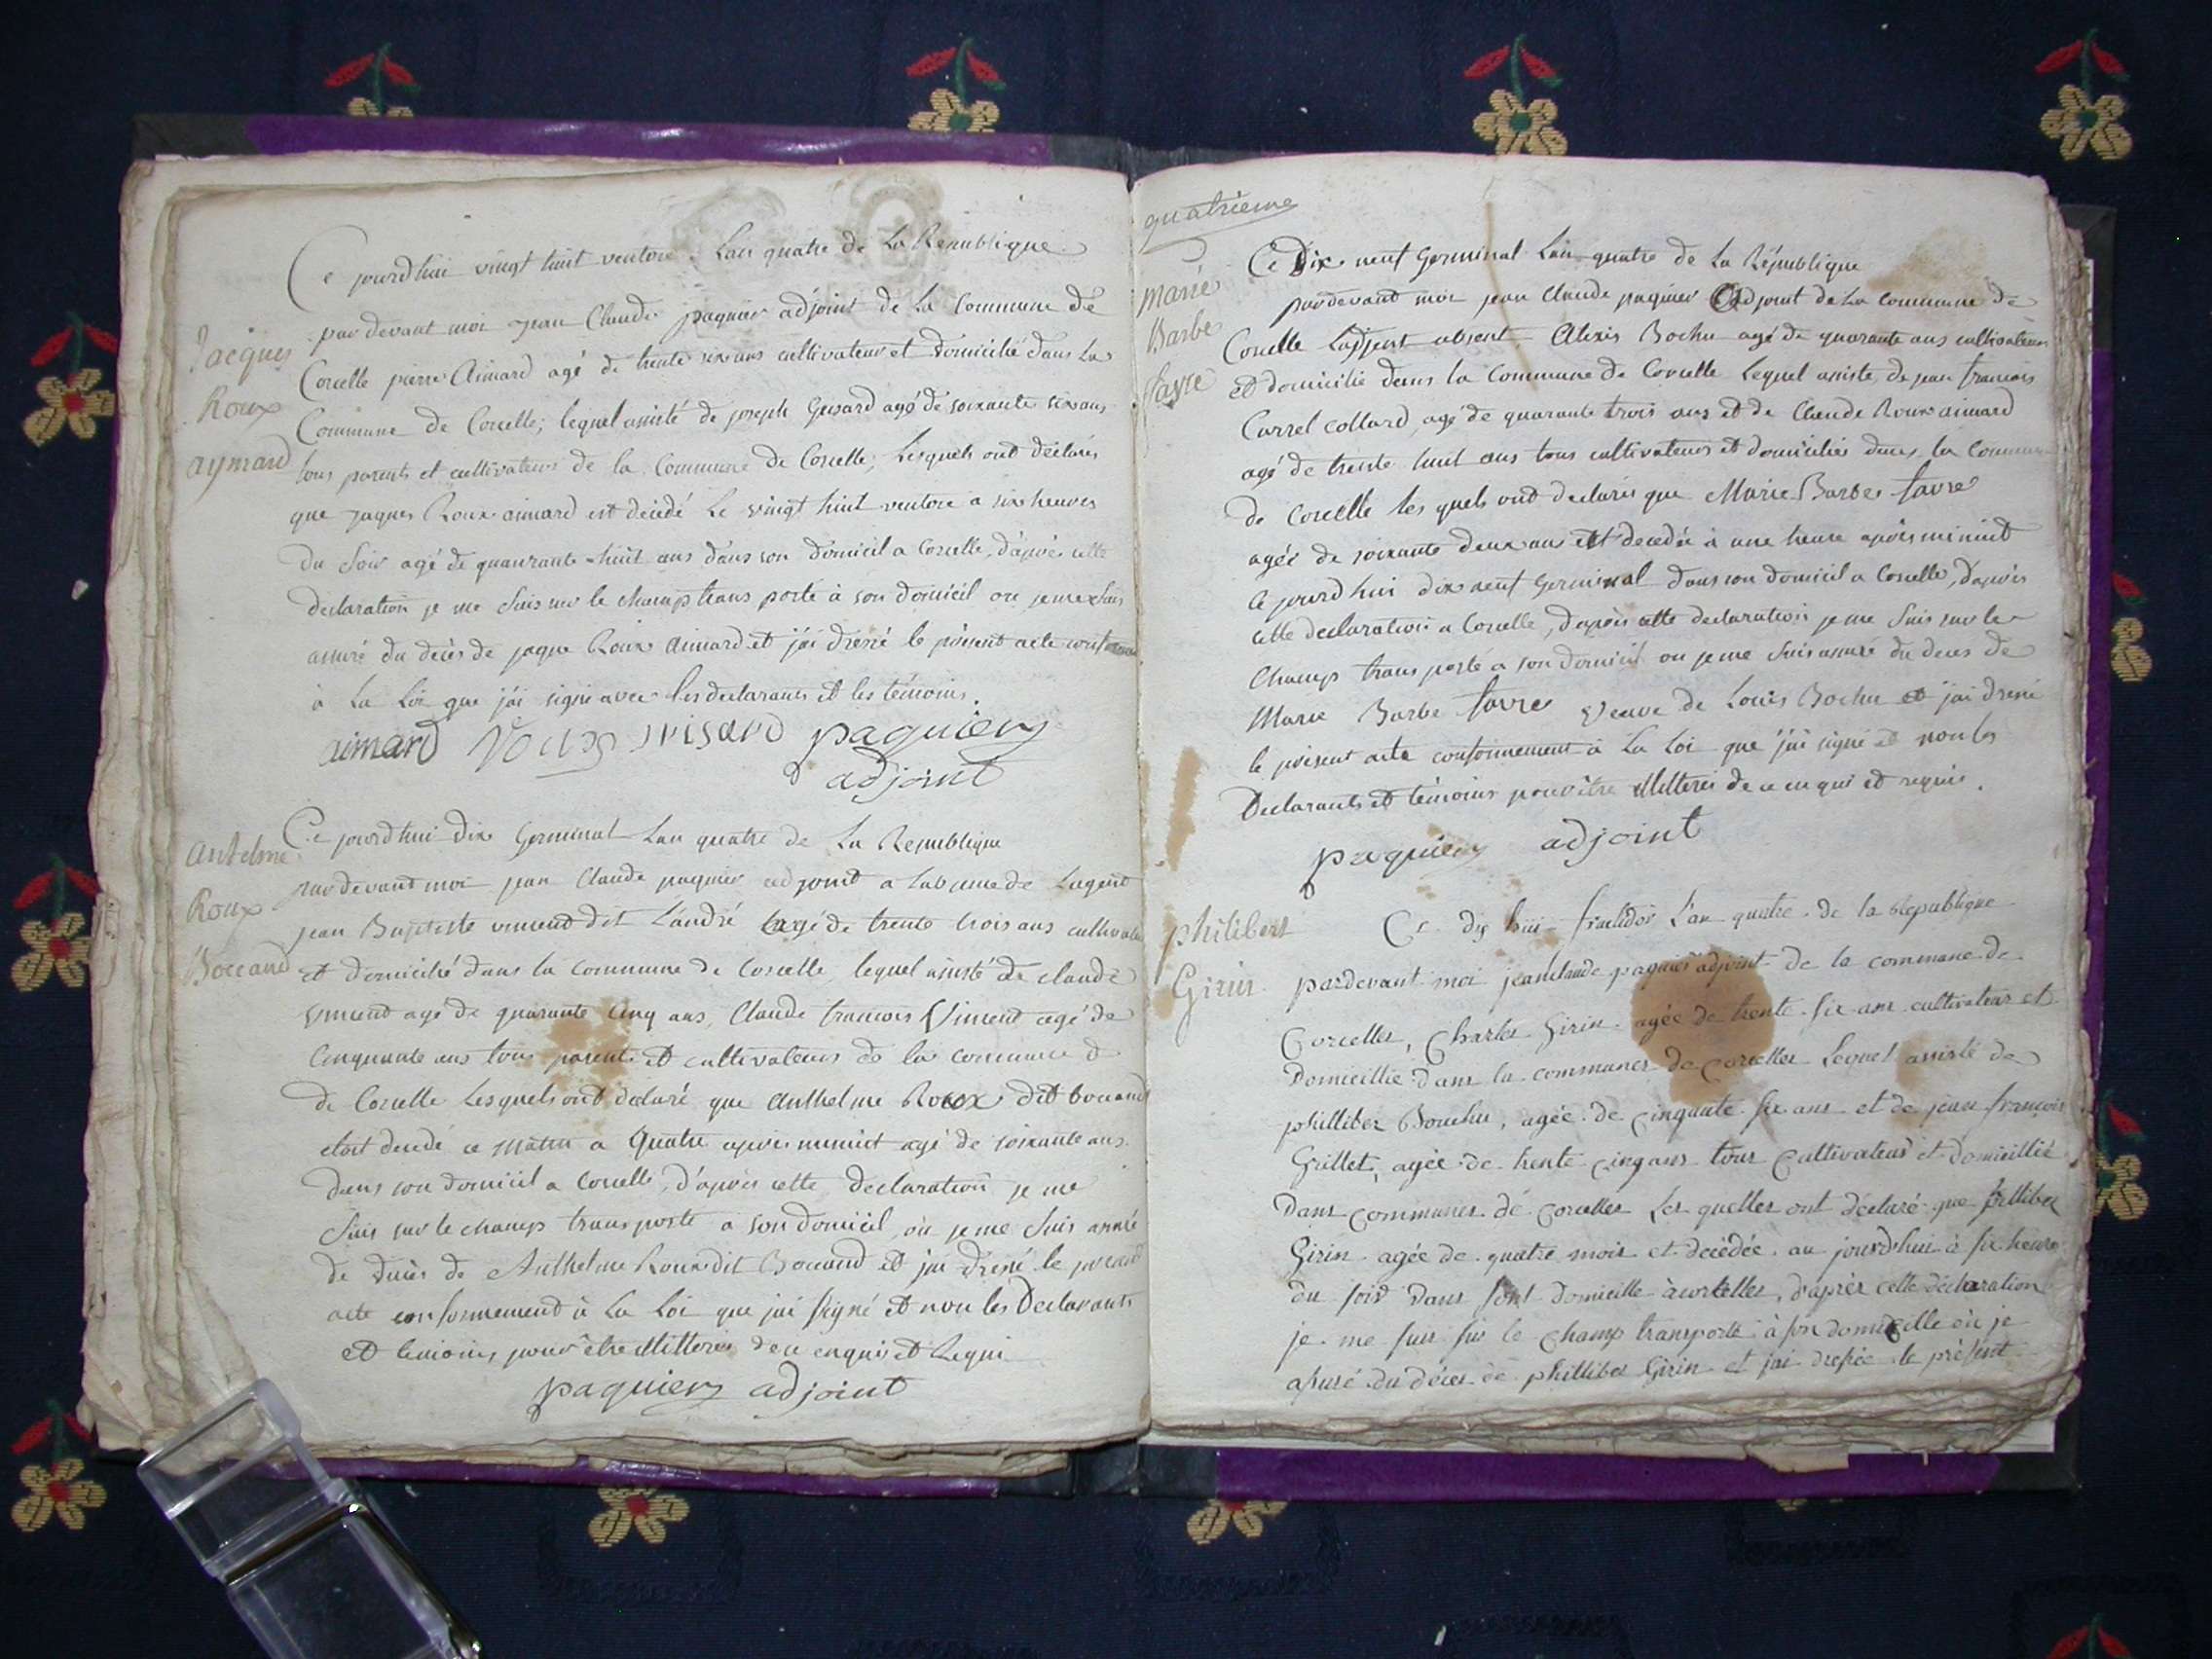 Jacques
Roux
aymard
Ce jourd'hui vingt huit ventose Lan quatre de La Republique
par devant moi jean Claude paquier adjoint de La Commune de
Corcelle pierre Aimard agé de trente six ans cultivateur et domicilié dans La
Commune de Corcelle; lequel assisté de joseph Grisard agé de soixante six ans
tous parents et cultivateurs de la Commune de Corcelle; Lesquels ont déclarés
que jaques Roux aimard est décédé Le vingt huit ventose a six heures
du soir agé de quanrante-huit ans dans son domicil a Corcelle, d'après cette
declaration je me suis sur le champ trans porté à son domicil ou je me suis
assuré du décès de jaque Roux Aimard et j'ai dressé le présent acte conforme
à La Loi que j'ai signé avec les declarants et les témoins.
aimard Roux grisard paquier
adjoint
Antelme
Roux
Boccand
Ce jourd'hui dix Germinal Lan quatre de La Republique
par devant moi jean Claude paquier adjoint a Labsence de Lagent
jean Baptiste vincend dit Landré agé de trente trois ans cultivate
et domicilié dans la commune de Corcelle lequel assisté de claude
vincend agé de quarante cinq ans, Claude francois Vincend agé de
Cinquante ans tous parents et cultivateurs de la commune d
de Corcelle Lesquels ont déclaré que Anthelme Roux dit bocand
etoit decedé ce matin a Quatre apres minuit agé de soixante ans
dans son domicil a Corcelle, d'après cette declaration je me
suis sur le champ transporté a son domicil, où je me suis assuré
de décès de Anthelme Roux dit Bocand et j'ai dressé le présent
acte conformement à La Loi que j'ai signé et non les Declarants
et temoins pour être illitterés de ce enquis et Requi
paquier adjoint
quatrième
marie
Barbe
favre
Ce Dix neuf Germinal Lan quatre de La République
pardevant moi jean Claude paquier Adjoint de La commune de
Corcelle Lagent absent Alexis Bochu agé de quarante ans cultivateur
et domicilié dans la Commune de Corcelle Lequel assisté de jean francois
Carrel Collard, agé de quarante trois ans et de Claude Roux aimard
agé de trente huit ans tous cultivateurs et domiciliés dans la Commun
de Corcelle les quels ont declarés que Marie Barbe favre
agée de soixante deux ans est decedée à une heure après minuit
ce jourd'hui dix neuf Germinal dans son domicil a Corcelle, d'après
cette declaration a Corcelle, d'après cette declaration je me suis sur le
champ trans porté a son domicil ou je me suis assuré du deces de
Marie Barbe favre veuve de Louis Bochu et j'ai dressé
le présent acte conformement à La Loi que j'ai signé et non les
Declarants et témoins pour être illitterés de ce enqui et requis.
paquier adjoint
philibert
Girin
Ce dix hui fructidor L'an quatre de la Republique
pardevant moi jean claude paquier adjoint de la commune de
Corcelles, Charles Girin agée de trente six ans cultivateur et
Domicillie dans la communes de corcelles Lequel assisté de
phillibez Bouchu, agée de cinquante six ans et de jean françois
Grillet, agée de trente cinq ans tous Cultivateurs et domicilliés
Dans communes dé corcelles Les quelles ont déclaré que fillibez
Girin agée de quatre mois et decédée au jourd'hui à six heure
du soir dans sont domicille à corcelles, d'après cette déclaration
je me suis sur le champ transporté à son domicille où je
assuré du décès de phillibez Girin et j'ai dressée le présent